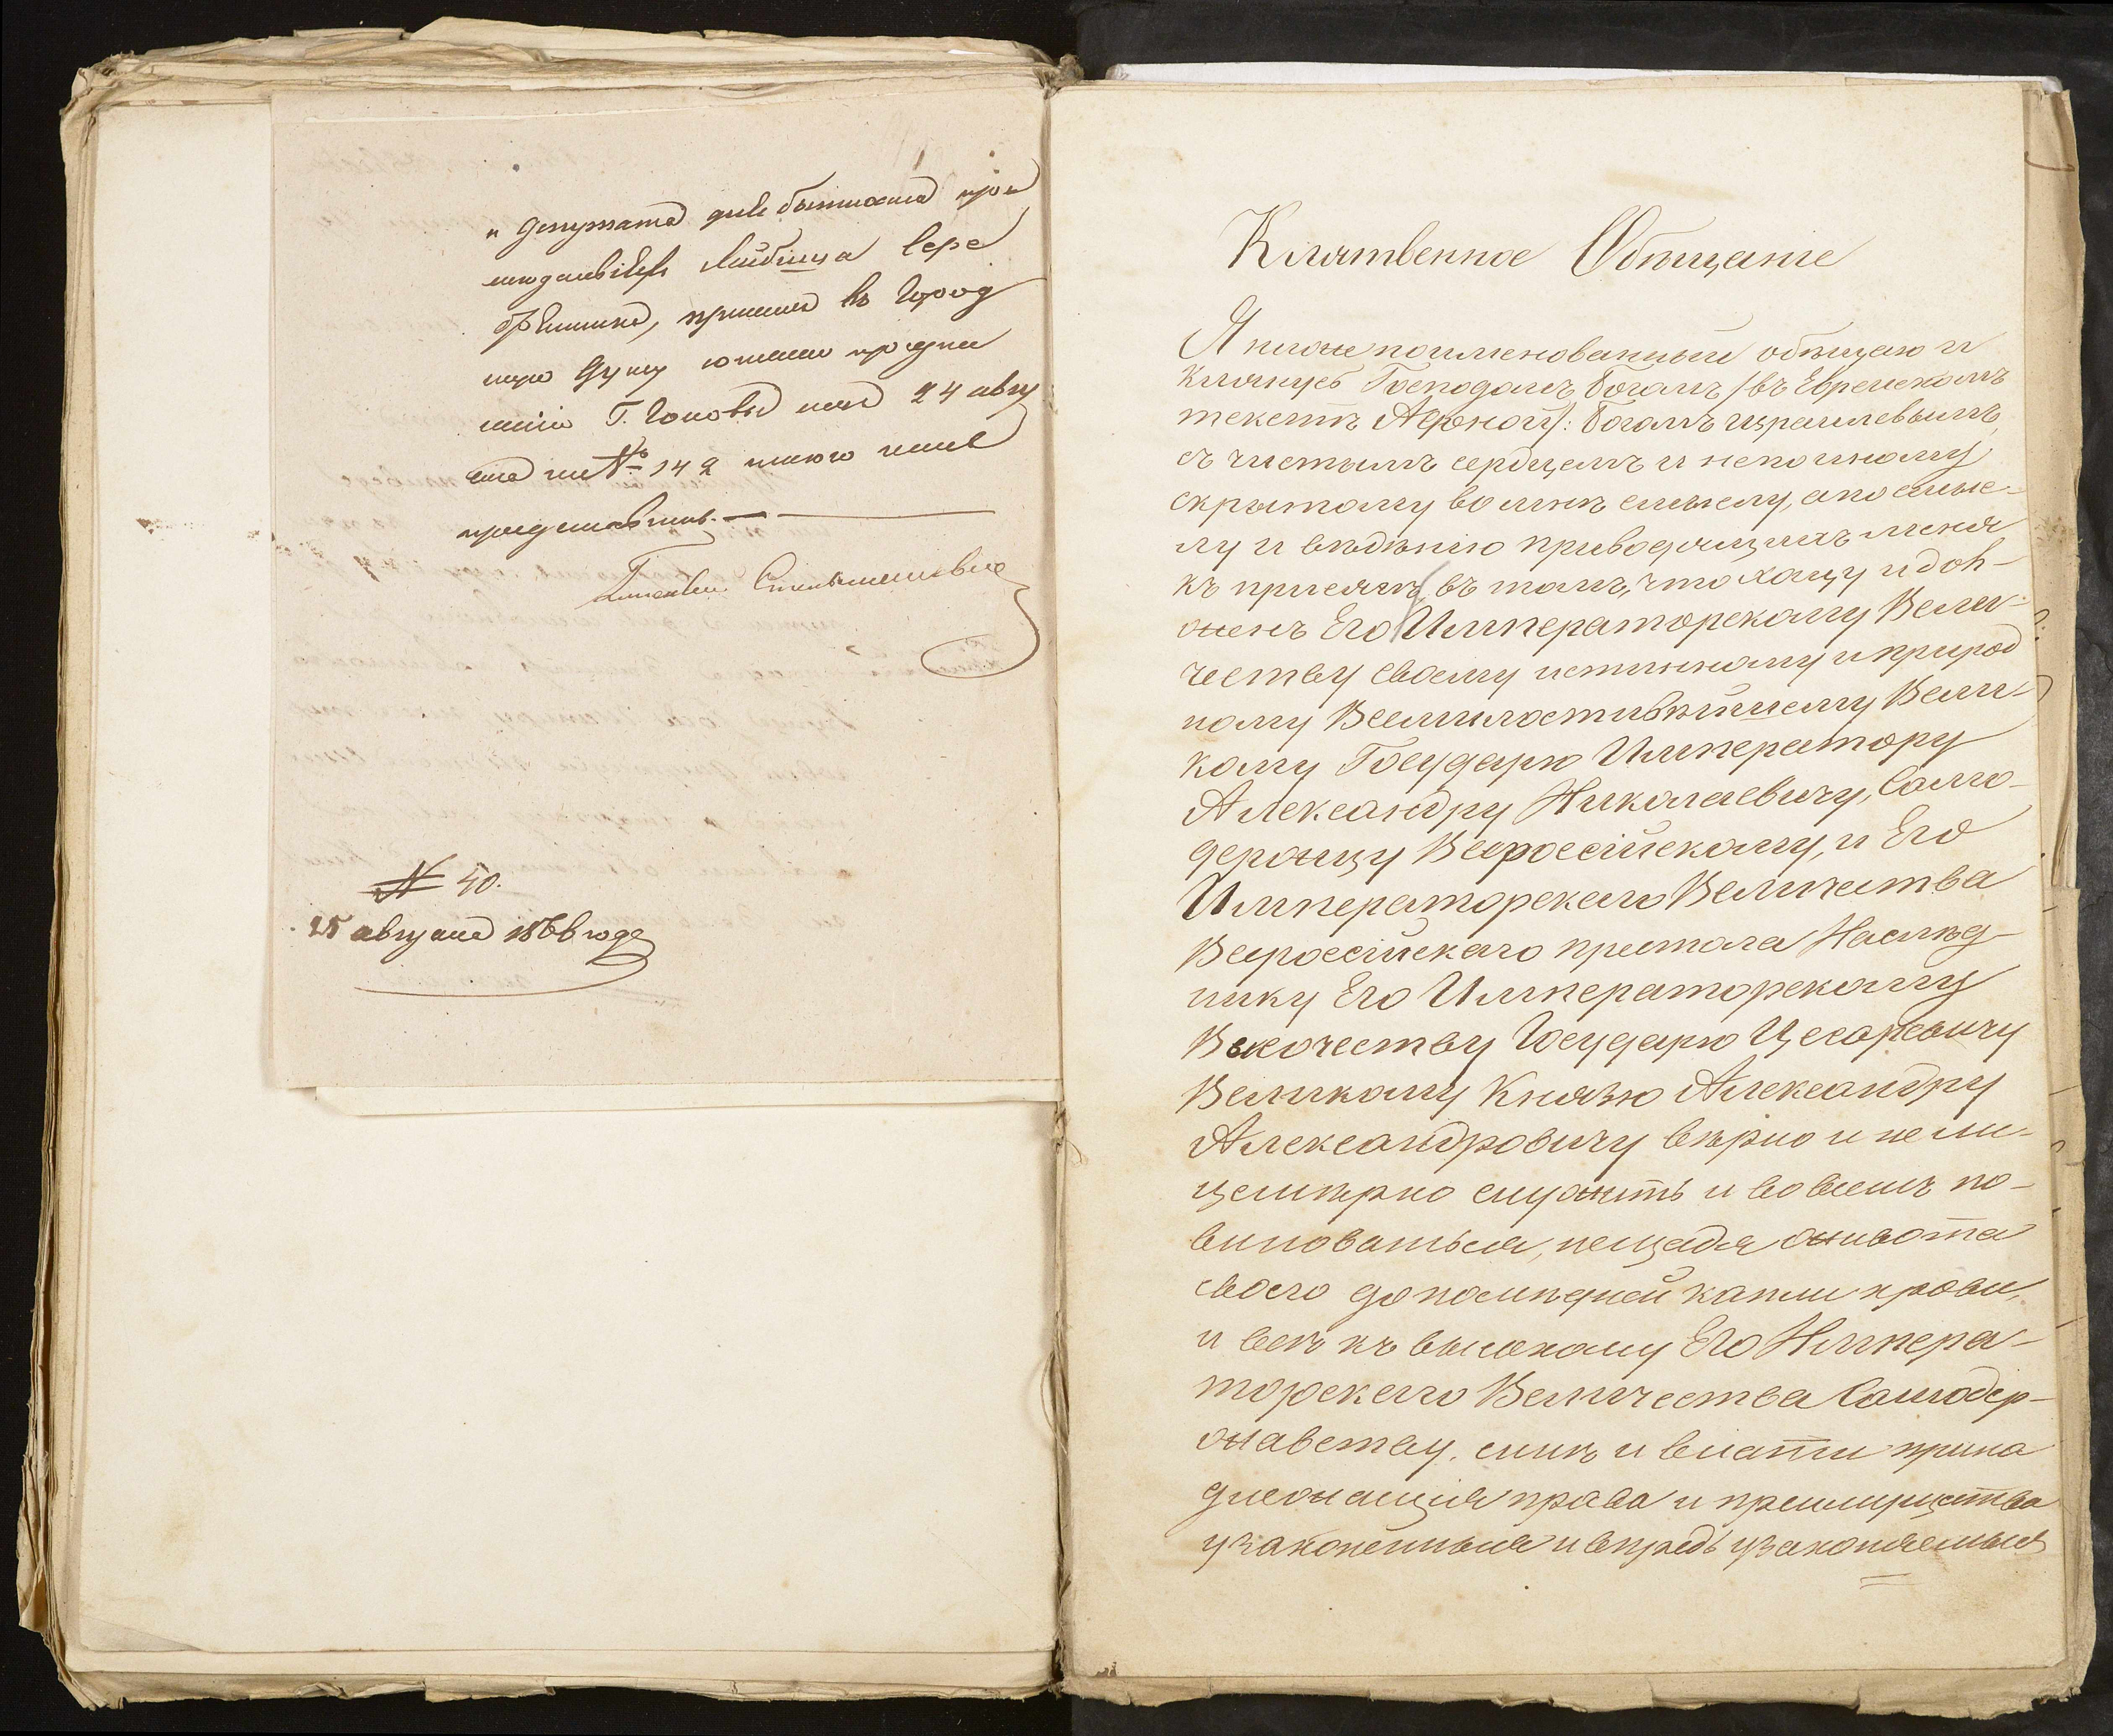 и депутата для бытности при
Лейбица Сере
брейника, при въ Город
скую Думу
Г. Головы отъ 24 авгу
ста за № 142 имею честь
представить.
№ 50.
25 августа 1866 года
Клятвенное Обѣщаніе
Я нижепоименованный обѣщаю и
Клянусь Господомъ Богомъ /въ Еврейскомъ
текстѣ Адонай/: Богомъ израилевымъ,
съ чистымъ сердцемъ и непоиному
скрытому во мнѣ смыслу, а по смыс-
лу и вѣдѣнію приводящихъ меня
къ присягѣ, въ томъ, что хощу и дол-
женъ Его Императорскому Вели-
честву своему истинному и природ
ному Всемилостивѣйшему Вели-
кому Государю Императору
Александру Николаевичу, Само-
держцу Всероссійскому, и Его
Императорскаго Величества
Всероссійскаго престола Наслѣд-
нику Его Императорскому
Высочеству Государю Цесаревичу
Великому Князю Александру
Александровичу вѣрно и нели-
цемѣрно служить и во всемъ по-
виноваться, нещадя живота
своего до послѣдней капли крови,
и всѣ къ высокому Его Импера-
торскаго Величества Самодер-
жавству, силѣ и власти прина
длежащія права и преимущества
узаконенныя и впредь узаконяемыя